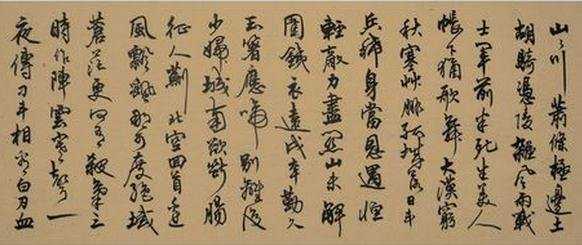 山川蕭條極邊土
胡騎憑陵雜風雨戰
士軍前半死生美人
帳下猶歌舞大漠窮
秋塞艸腓孤城落日斗
兵稀身當恩遇恒
輕敵力盡關山未解
圍鐵衣遠戍辛勤久
玉箸應啼別離後
少婦城南欲斷腸
征人薊北空回首邊
風飄飄那可度絕域
蒼茫更何有殺氣三
時作陣雲寒聲一
夜傳刁斗相看白刃血